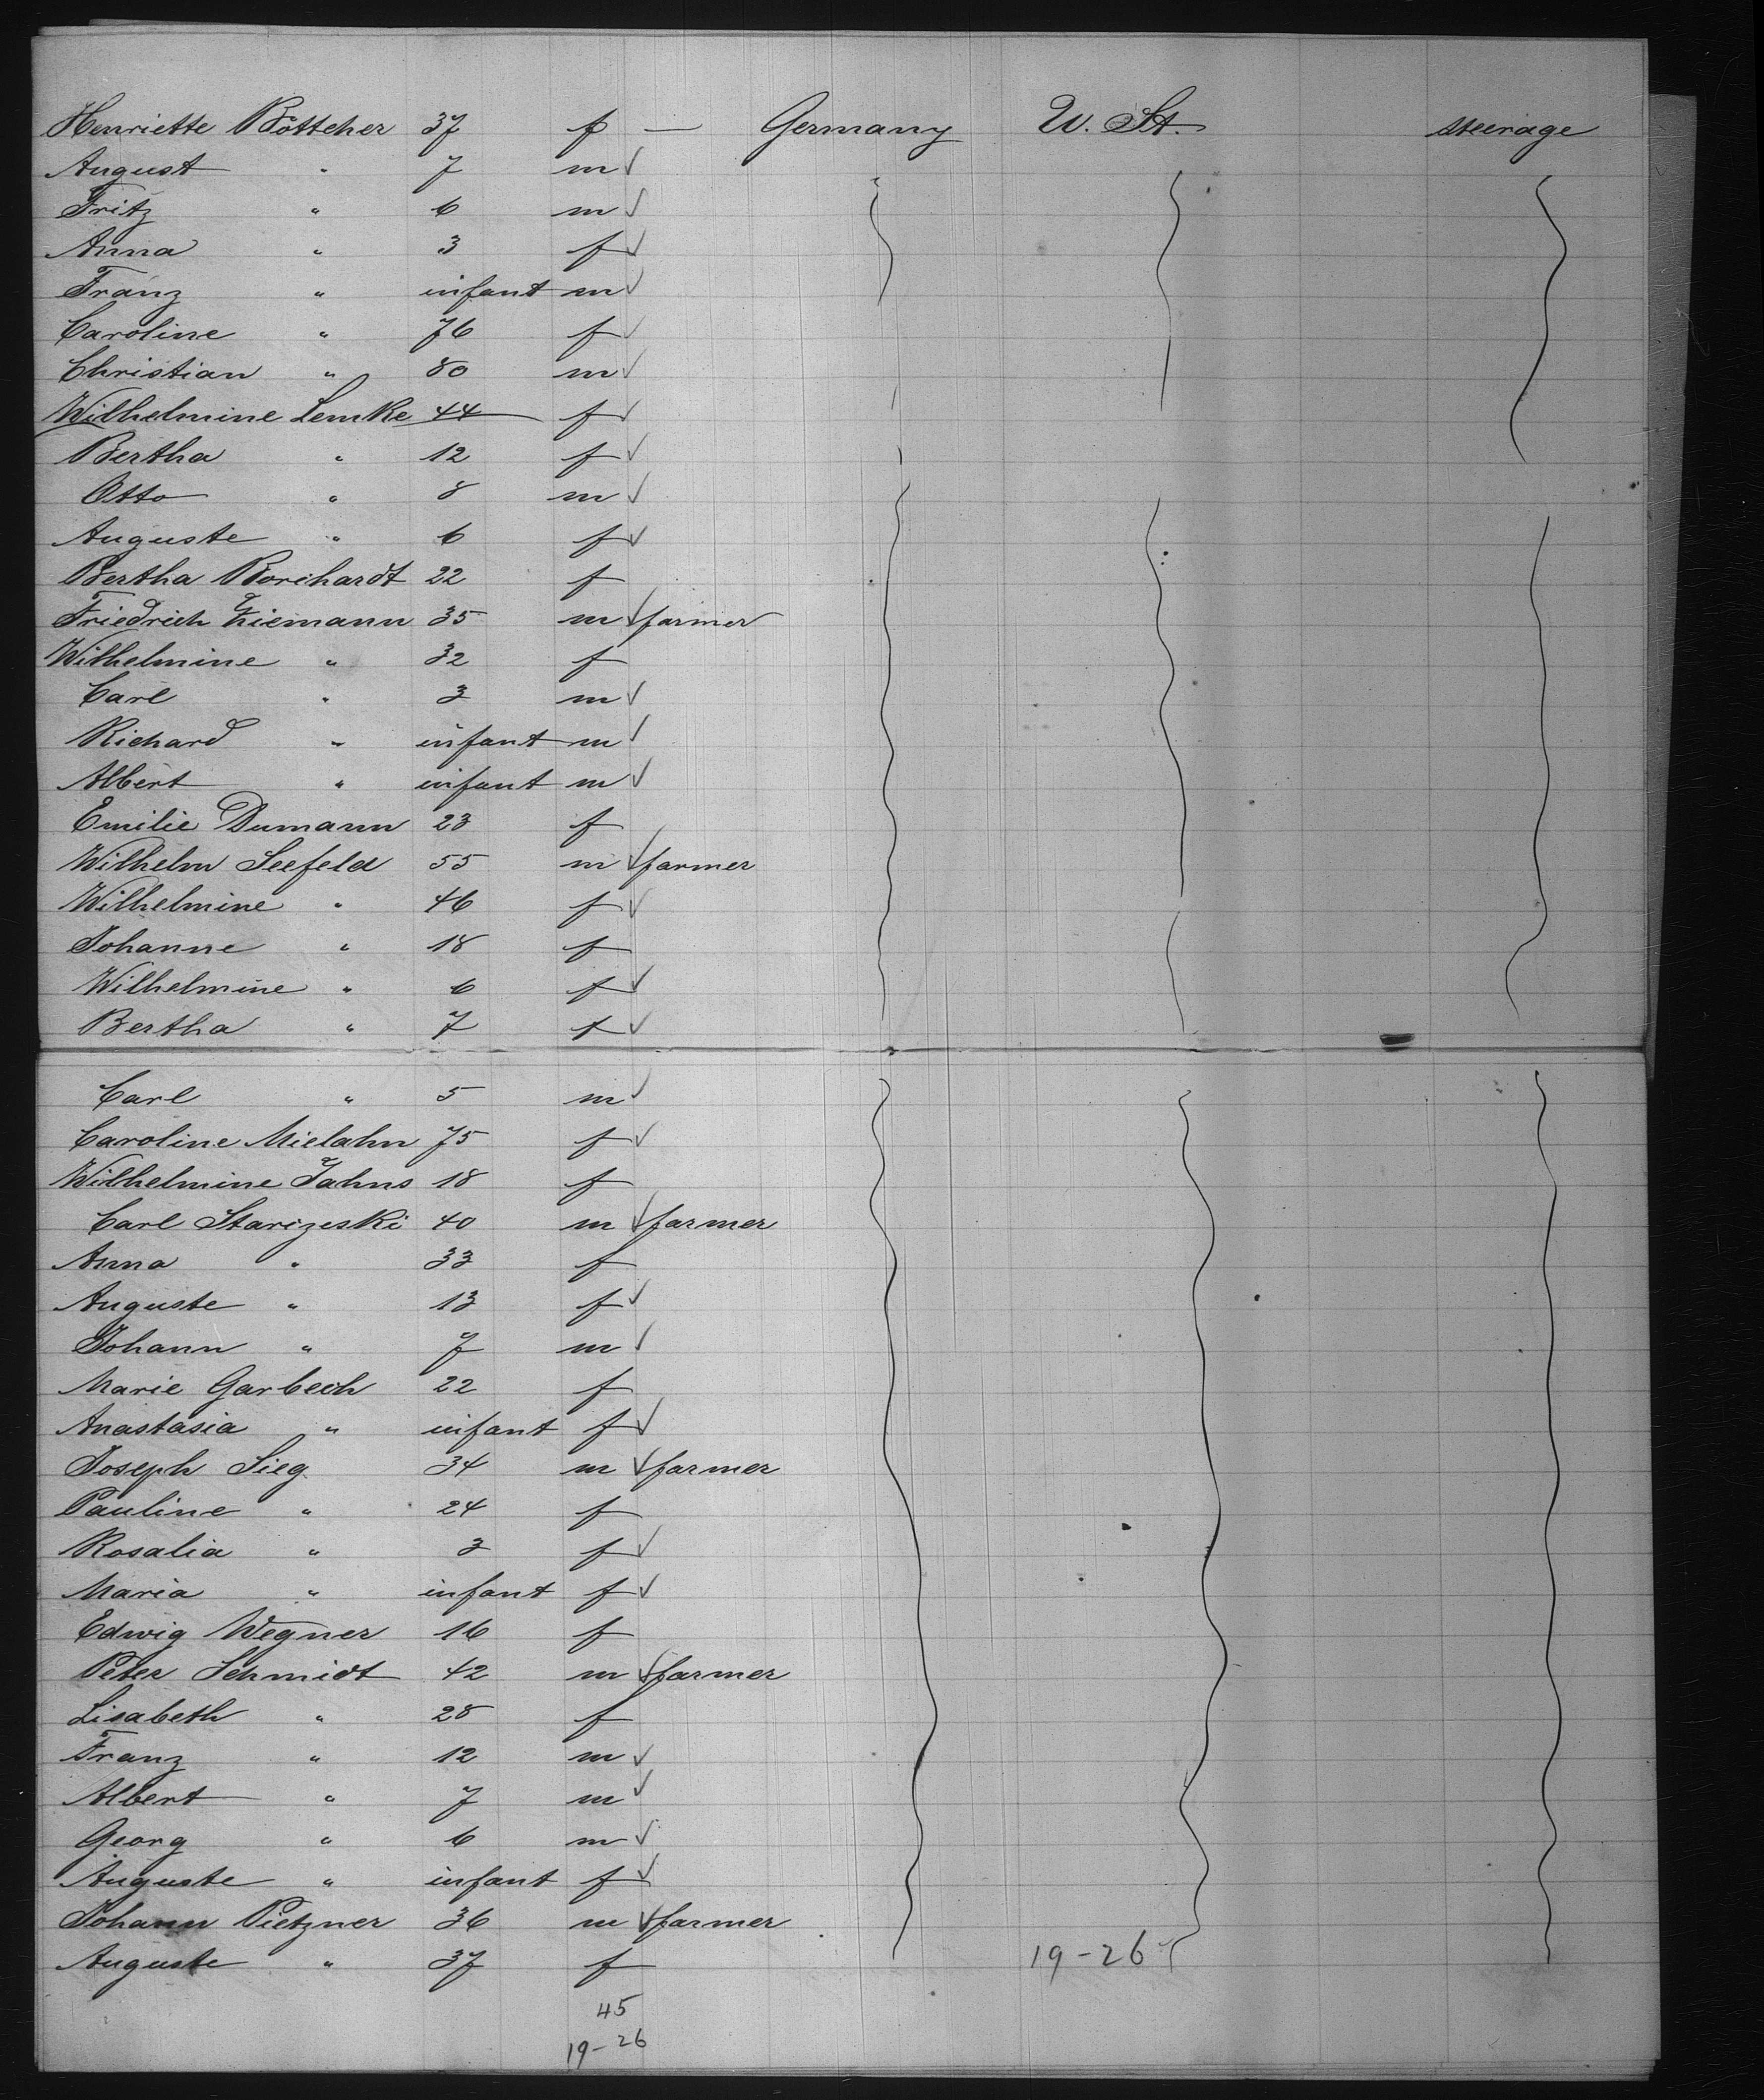 Henriette Böttcher 37 f — Germany U. St. steerage
August " 7 m ✓
Fritz " 6 m ✓
Anna " 3 f ✓
Franz " infant m ✓
Caroline " 76 f ✓
Christian " 80 m ✓
Wilhelmine Lemke 44 f ✓
Bertha " 12 f ✓
Otto " 8 m ✓
Auguste " 6 f ✓
Bertha Borchardt 22 f
Friedrich Ziemann 35 m ✓ farmer
Wilhelmine " 32 f
Carl " 3 m ✓
Richard " infant m ✓
Albert " infant m ✓
Emilie Dumann 23 f
Wilhelm Seefeld 55 m ✓ farmer
Wilhelmine " 46 f ✓
Johanne " 18 f
Wilhelmine " 6 f ✓
Bertha " 7 f ✓
Carl " 5 m ✓
Caroline Mielahn 75 f ✓
Wilhelmine Jahns 18 f
Carl Starizeski 40 m ✓ farmer
Anna " 33 f
Auguste " 13 f ✓
Johann " 7 m ✓
Marie Garbech 22 f
Anastasia " infant f ✓
Joseph Sieg 34 m ✓ farmer
Pauline " 24 f
Rosalia " 3 f ✓
Maria " infant f ✓
Edwig Wegner 16 f
Peter Schmidt 42 m ✓ farmer
Lisabeth " 28 f
Franz " 12 m ✓
Albert " 7 m ✓
Georg " 6 m ✓
Auguste " infant f ✓
Johann Pietzner 36 m ✓ farmer
Auguste " 37 f 19-26
45
19-26